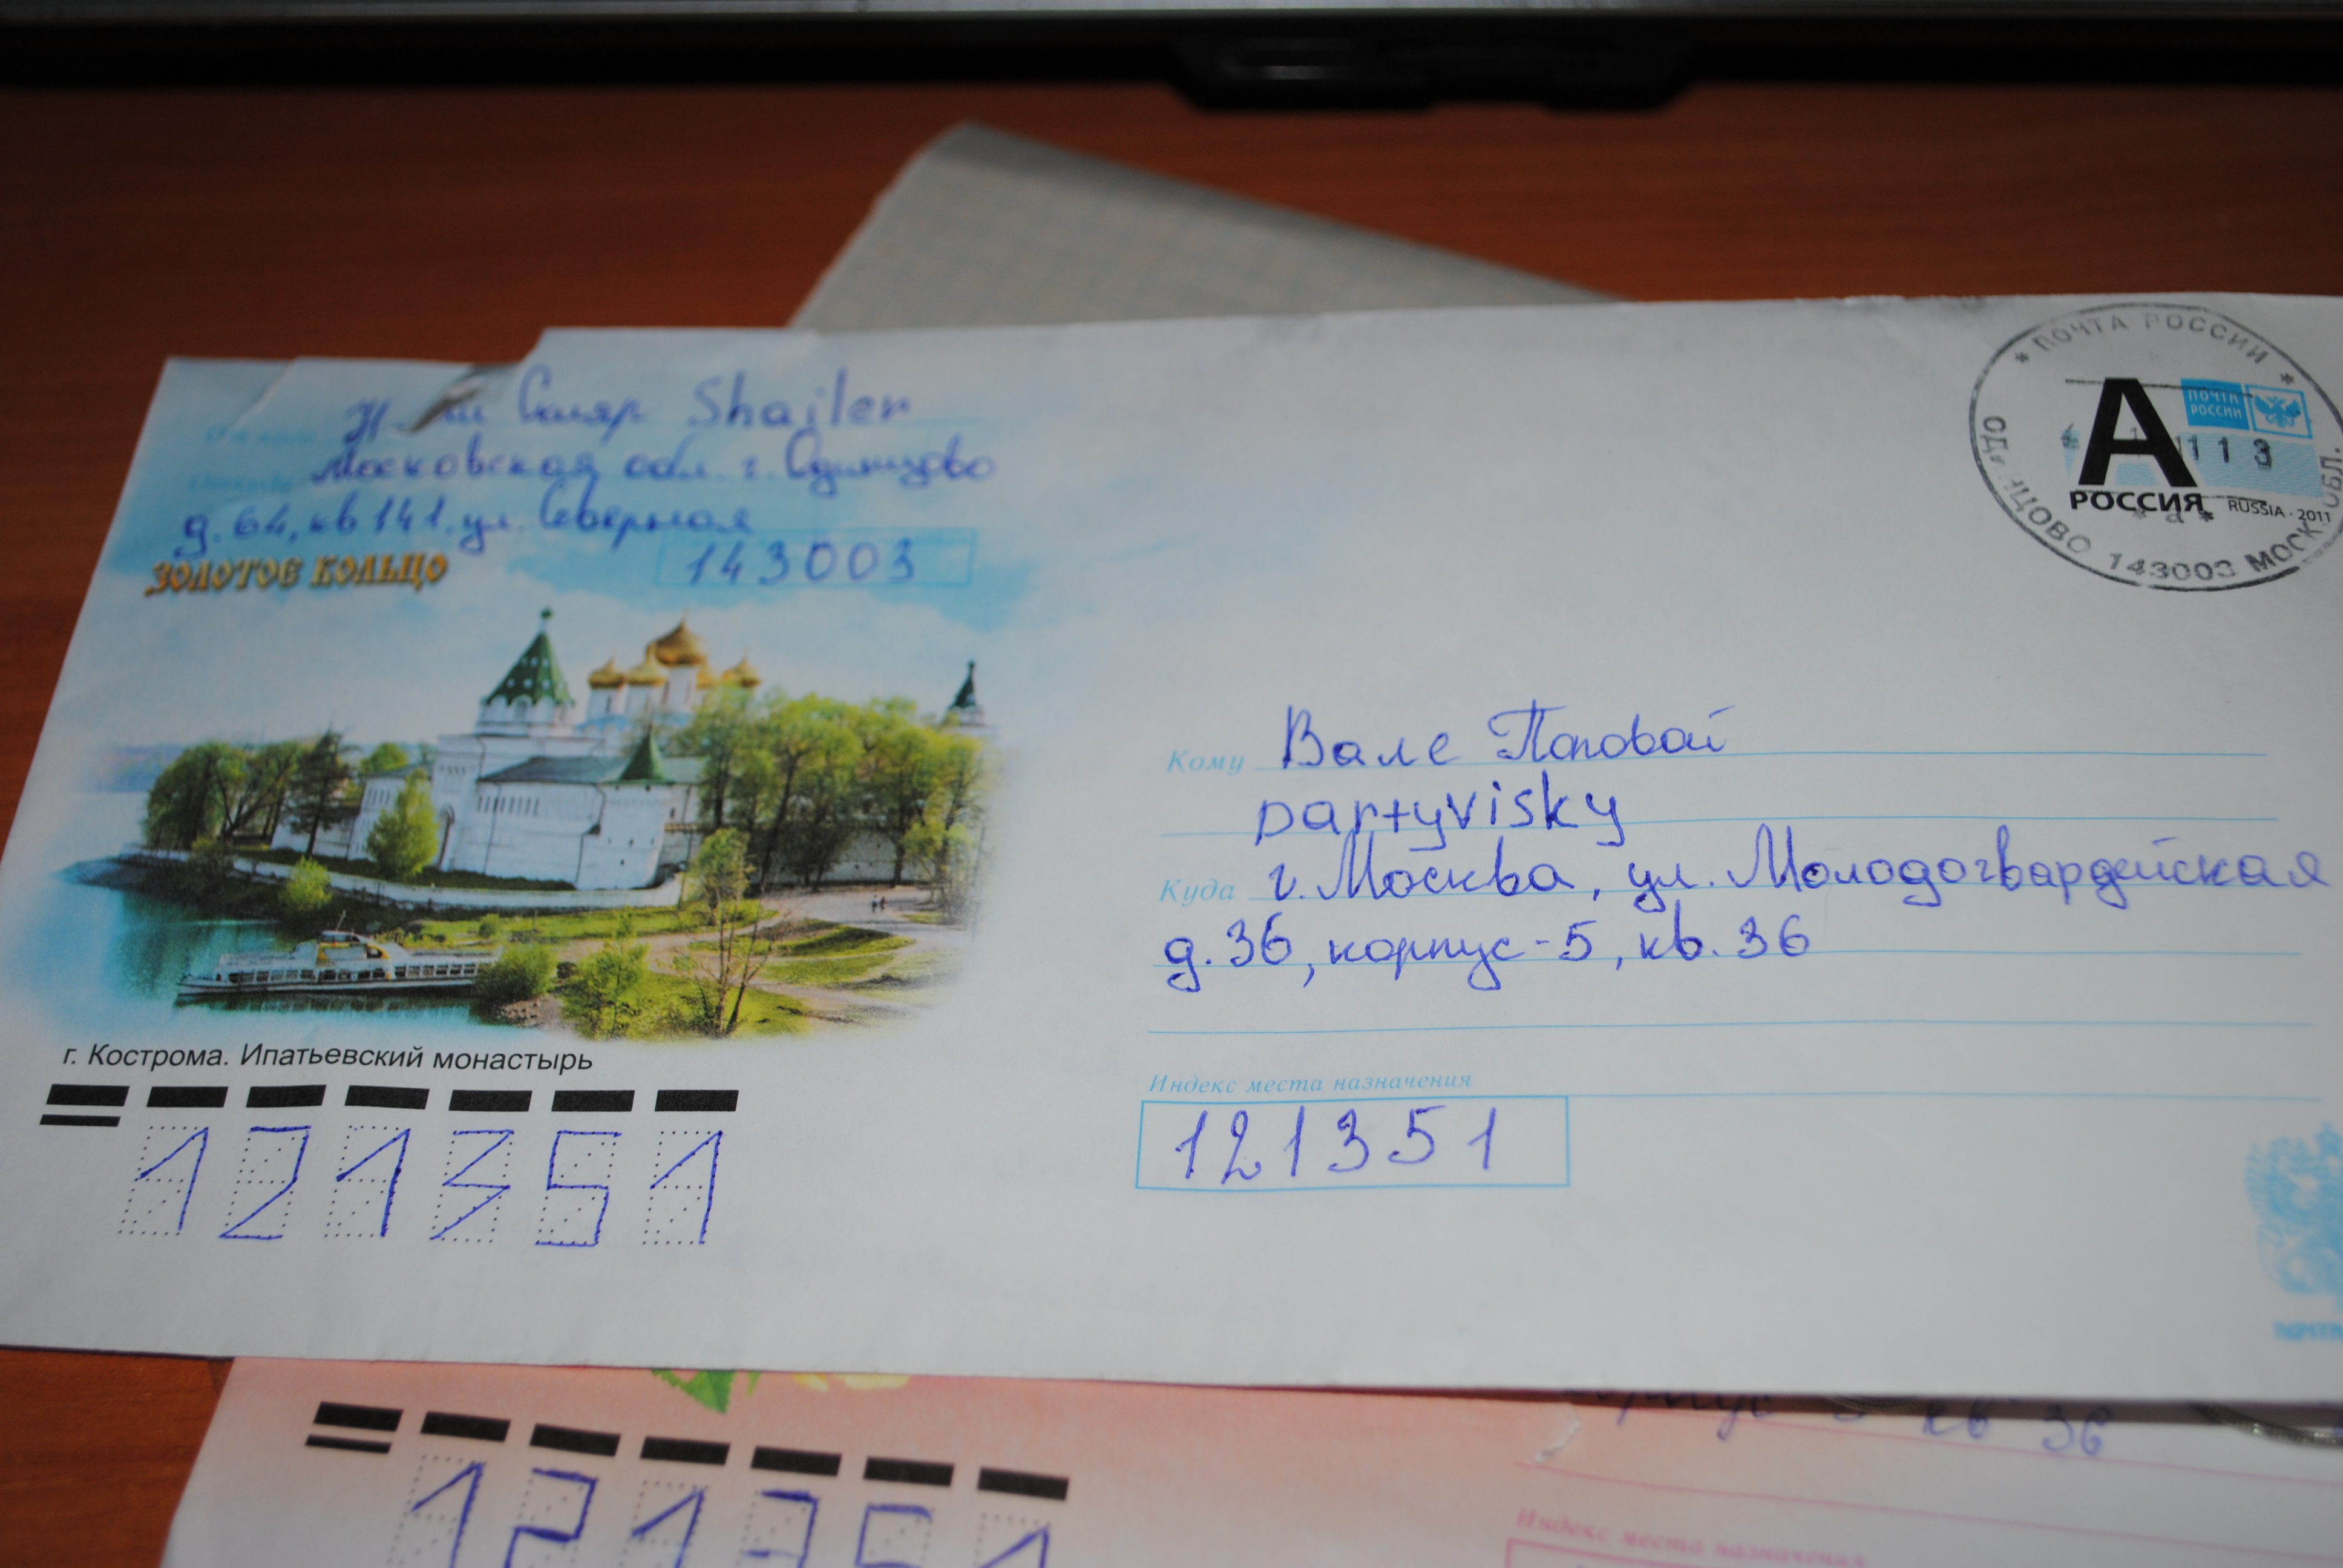 Скляр Shailer
Московская обл. г. Одинцово
д. 64, кв 141. ул. Северная
143003
ЗОЛОТОЕ КОЛЬЦО
г. Кострома. Ипатьевский монастырь
121351
* ПОЧТА РОССИИ *
ПОЧТА РОССИИ
А
113
РОССИЯ RUSSIA - 2011
* а *
143003 МОСК. ОБЛ.
Кому Вале Поповой
partyvisky
Куда г. Москва, ул. Молодогвардейская
д. 36, корпус - 5, кв. 36
Индекс места назначения
121351
кв 36
Индекс места назначения